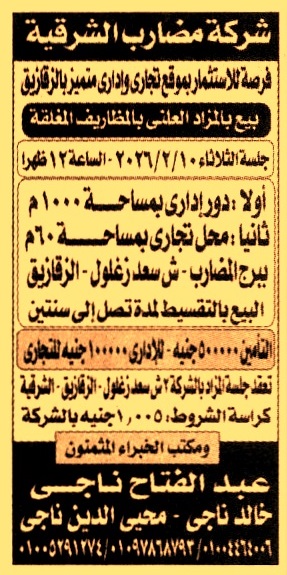 شركة مضارب الشرقية
فرصة للاستثمار بموقع تجارى وإدارى متميز بالزقازيق
بيع بالمزاد العلنى بالمظاريف المغلقة
جلسة الثلاثاء ٢٠٢٦/٢/١٠ - الساعة ١٢ ظهرا
أولا : دور إدارى بمساحة ١٠٠٠م
ثانيا : محل تجارى بمساحة ٦٠م
ببرج المضارب - ش سعد زغلول - الزقازيق
البيع بالتقسيط لمدة تصل إلى سنتين
التأمين ٥٠٠٠٠٠ جنيه - للإدارى ١٠٠٠٠٠ جنيه للتجارى
تعقد جلسة المزاد بالشركة ٢ ش سعد زغلول - الزقازيق - الشرقية
كراسة الشروط ١٫٠٠٥ جنيه بالشركة
ومكتب الخبراء المثمنون
عبد الفتاح ناجى
خالد ناجى - محيى الدين ناجى
٠١٠٠٤٤٦٤٠٠٦ / ٠١٠٩٧٨٦٨٧٩٣ / ٠١٠٠٥٢٩١٢٧٤